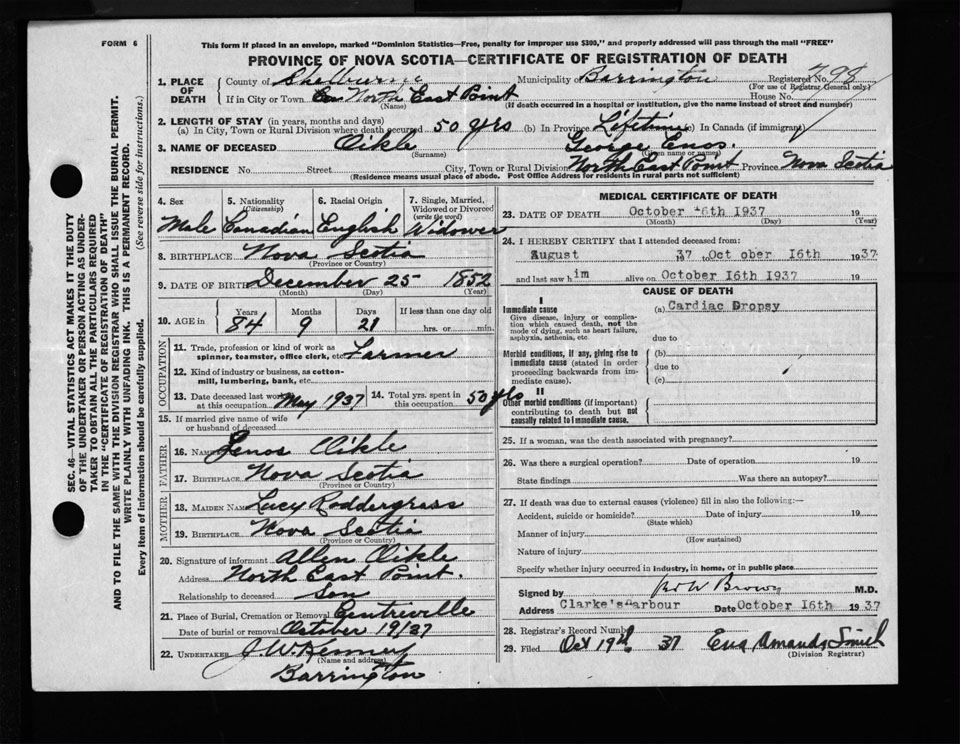 FORM 6
This form if placed in an envelope, marked "Dominion Statistics—Free, penalty for improper use $300," and properly addressed will pass through the mail "FREE"
PROVINCE OF NOVA SCOTIA—CERTIFICATE OF REGISTRATION OF DEATH
1. PLACE OF DEATH County of Shelburne Municipality of Barrington Registered No. 798
(For use of Registrar General only)
If in City or Town North East Point House No.
(Name) (If death occurred in a hospital or institution, give the name instead of street and number)
2. LENGTH OF STAY (in years, months and days)
(a) In City, Town or Rural Division where death occurred 50 yrs (b) In Province Lifetime (c) In Canada (if immigrant)
3. NAME OF DECEASED Oikle George Enos.
(Surname) (Given name or names)
RESIDENCE No. Street City, Town or Rural Division North East Point Province Nova Scotia
(Residence means usual place of abode. Post Office Address for residents in rural parts not sufficient)
4. Sex 5. Nationality (Citizenship) 6. Racial Origin 7. Single, Married, Widowed or Divorced (write the word)
Male Canadian English Widower
8. BIRTHPLACE Nova Scotia
(Province or Country)
9. DATE OF BIRTH December 25 1852
(Month) (Day) (Year)
10. AGE in Years Months Days If less than one day old
84 9 21 hrs. or min.
OCCUPATION
11. Trade, profession or kind of work as spinner, teamster, office clerk, etc. Farmer
12. Kind of industry or business, as cotton-mill, lumbering, bank, etc.
13. Date deceased last worked at this occupation May 1937 14. Total yrs. spent in this occupation 50 yrs
15. If married give name of wife or husband of deceased
FATHER
16. NAME Oikle
17. BIRTHPLACE Nova Scotia
(Province or Country)
MOTHER
18. MAIDEN NAME Lucy
19. BIRTHPLACE Nova Scotia
(Province or Country)
20. Signature of informant Allen Oikle
Address North East Point.
Relationship to deceased Son
21. Place of Burial, Cremation or Removal Centreville
Date of burial or removal October 19/37
22. UNDERTAKER J. W. Kenney
(Name and address)
Barrington
MEDICAL CERTIFICATE OF DEATH
23. DATE OF DEATH October 16th 1937 19
(Month) (Day) (Year)
24. I HEREBY CERTIFY that I attended deceased from:
August 37 to October 16th 1937
and last saw him alive on October 16th 1937 19
CAUSE OF DEATH
I
Immediate cause (a) Cardiac Dropsy
Give disease, injury or complication which caused death, not the mode of dying, such as heart failure, asphyxia, asthenia, etc
due to
Morbid conditions, if any, giving rise to immediate cause (stated in order proceeding backwards from immediate cause).
(b)
due to
(c)
II
Other morbid conditions (if important) contributing to death but not causally related to immediate cause.
25. If a woman, was the death associated with pregnancy?
26. Was there a surgical operation? Date of operation 19
State findings Was there an autopsy?
27. If death was due to external causes (violence) fill in also the following:—
Accident, suicide or homicide? Date of injury 19
(State which)
Manner of injury
(How sustained)
Nature of injury
Specify whether injury occurred in industry, in home, or in public place
Signed by Brown M.D.
Address Clarke's Harbour Date October 16th 1937
28. Registrar's Record Number
29. Filed Oct 19th 37 Smith
(Division Registrar)
SEC. 46—VITAL STATISTICS ACT MAKES IT THE DUTY
OF THE UNDERTAKER OR PERSON ACTING AS UNDER-
TAKER TO OBTAIN ALL THE PARTICULARS REQUIRED
IN THE "CERTIFICATE OF REGISTRATION OF DEATH"
AND TO FILE THE SAME WITH THE DIVISION REGISTRAR WHO SHALL ISSUE THE BURIAL PERMIT.
WRITE PLAINLY WITH UNFADING INK. THIS IS A PERMANENT RECORD.
Every item of information should be carefully supplied. (See reverse side for instructions.)